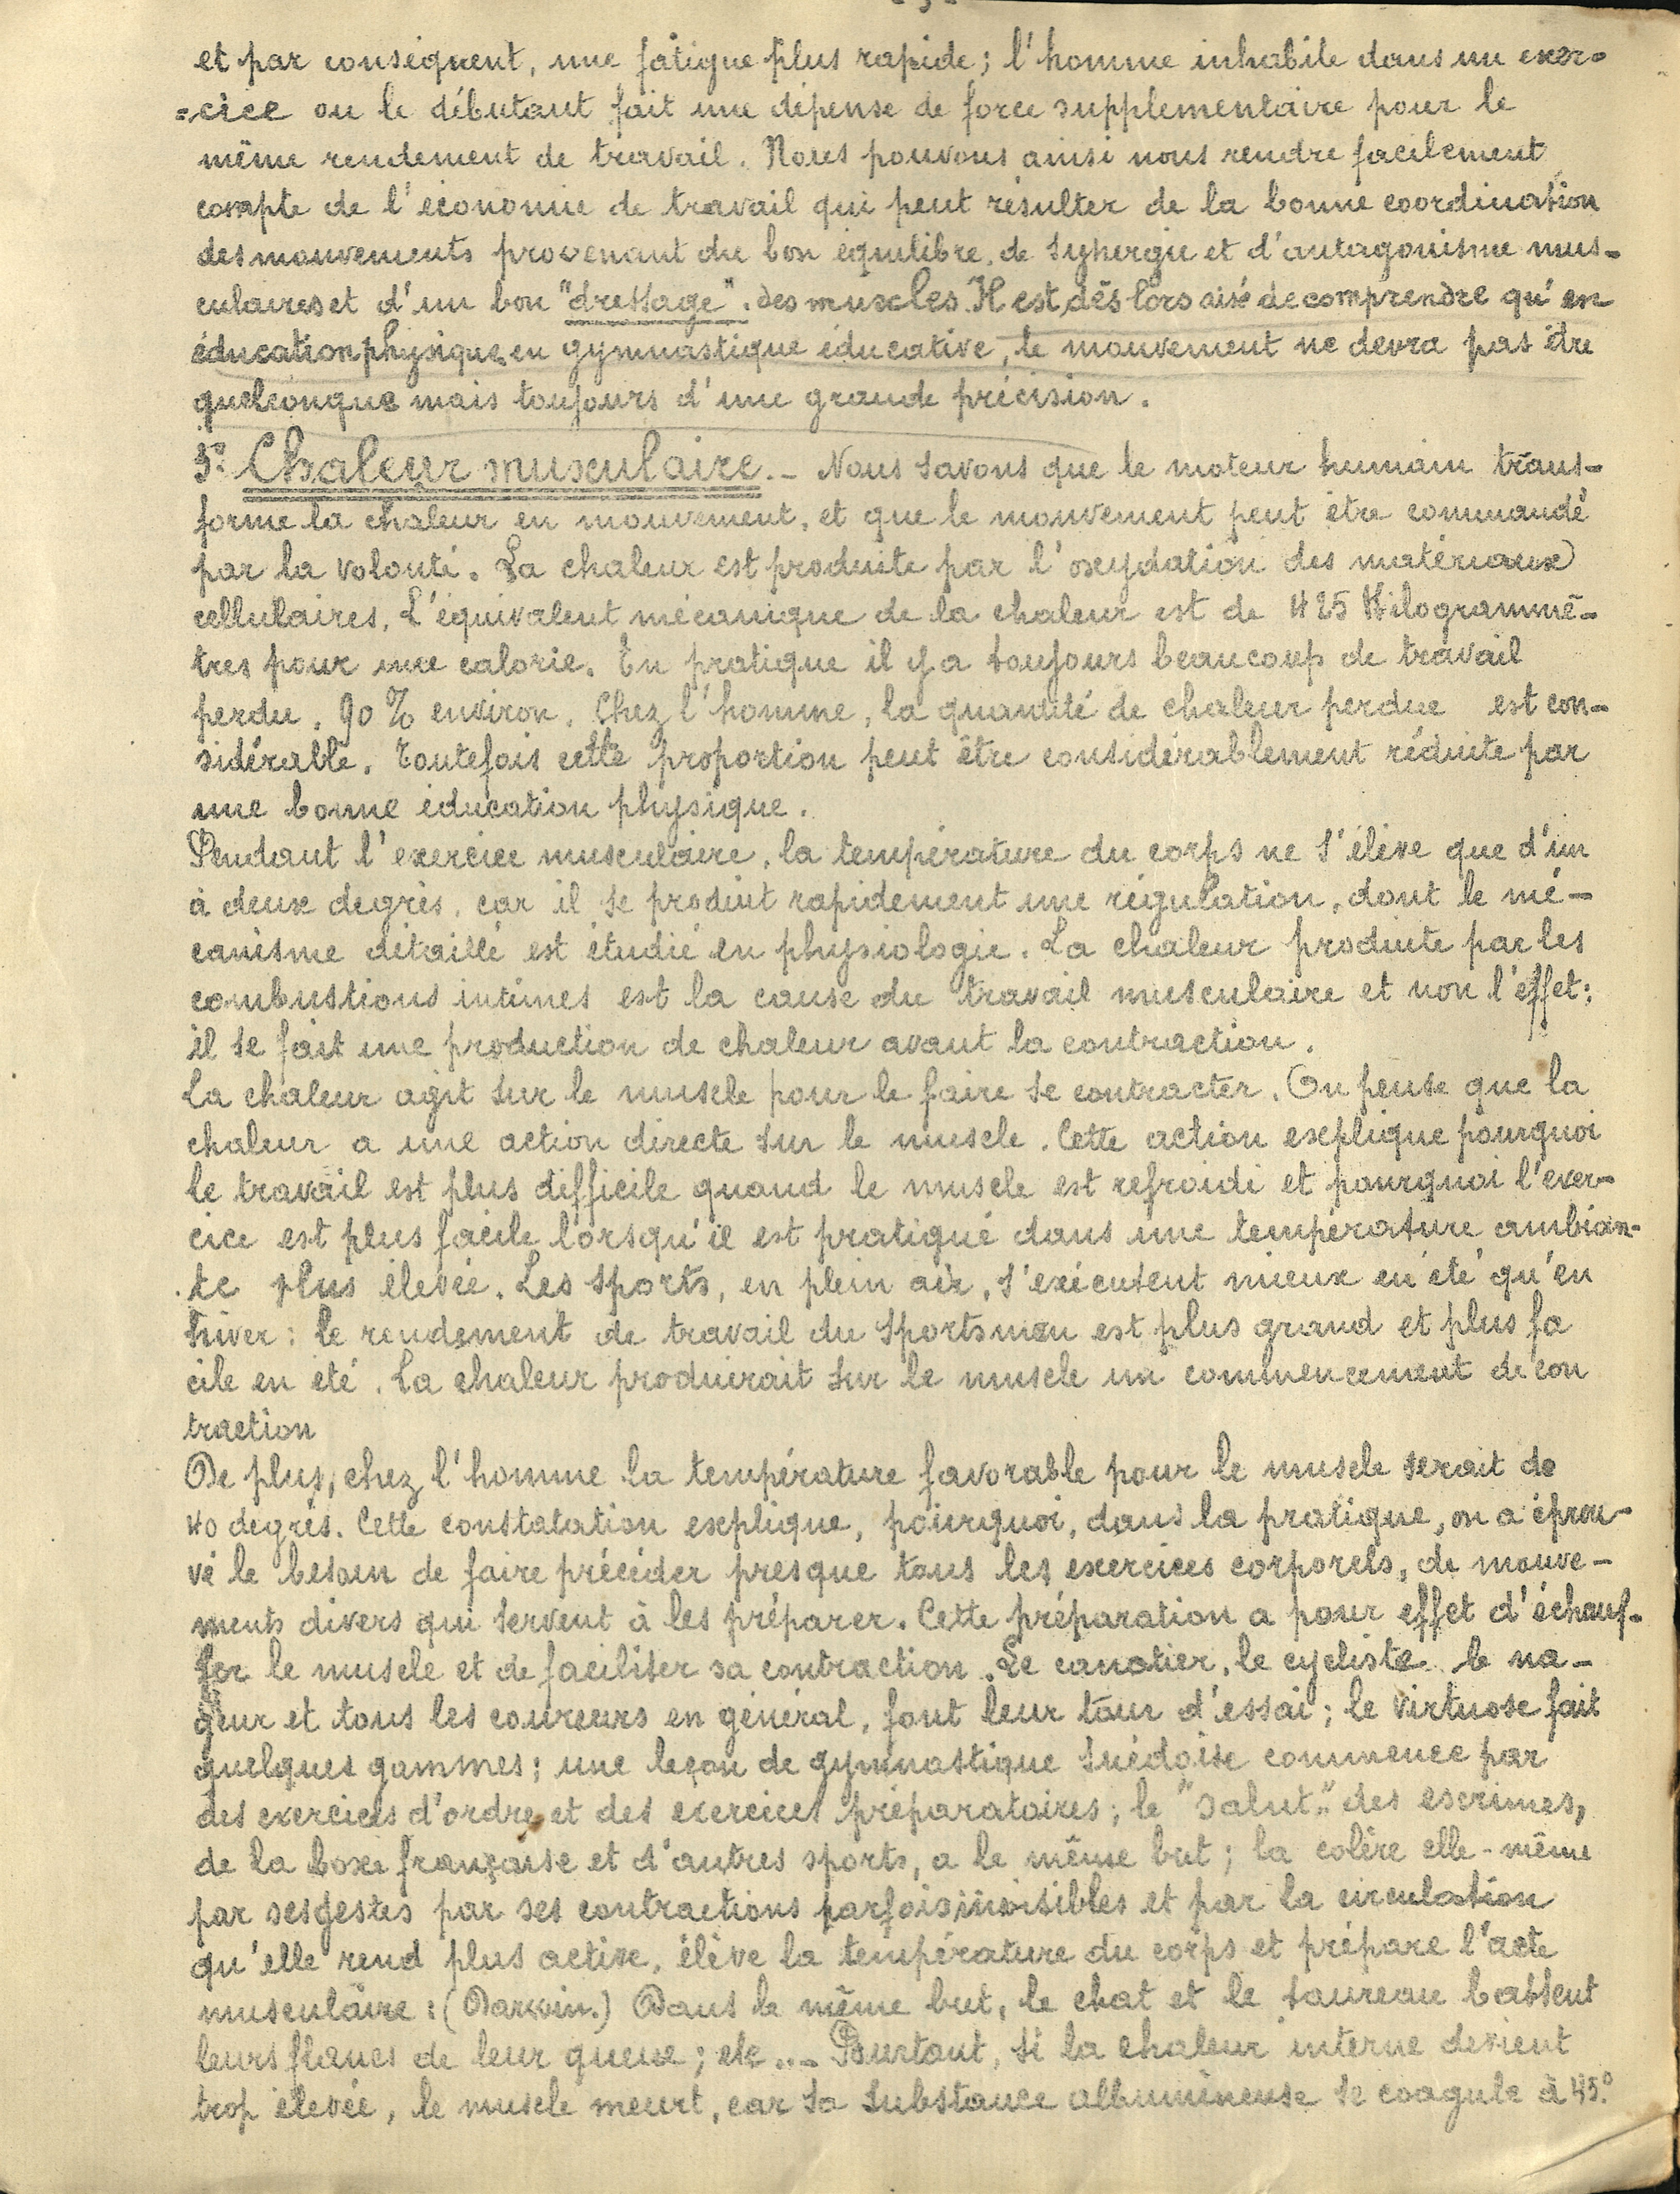 et par conséquent, une fatigue plus rapide; l'homme inhabile dans un exer-
=cice ou le débutant fait une dépense de force supplémentaire pour le
même rendement de travail. Nous pouvons ainsi nous rendre facilement
compte de l'économie de travail qui peut résulter de la bonne coordination
des mouvements provenant du bon équilibre, de synergie et d'antagonisme mus-
culaires et d'un bon "dressage". des muscles. Il est dès lors aisé de comprendre qu'en
éducation physique, en gymnastique éducative, le mouvement ne devra pas être
quelconque mais toujours d'une grande précision.
5° Chaleur musculaire. - Nous savons que le moteur humain trans-
forme la chaleur en mouvement, et que le mouvement peut être commandé
par la volonté. La chaleur est produite par l'oxydation des matériaux
cellulaires. L'équivalent mécanique de la chaleur est de 425 Kilogrammè-
tres pour une calorie. En pratique il y a toujours beaucoup de travail
perdu, 90% environ. Chez l'homme, la quantité de chaleur perdue est con-
sidérable. Toutefois cette proportion peut être considérablement réduite par
une bonne éducation physique.
Pendant l'exercice musculaire, la température du corps ne s'élève que d'un
à deux degrés, car il se produit rapidement une régulation, dont le mé-
canisme détaillé est étudié en physiologie. La chaleur produite par les
combustions intimes est la cause du travail musculaire et non l'effet;
il se fait une production de chaleur avant la contraction.
La chaleur agit sur le muscle pour le faire se contracter. On pense que la
chaleur a une action directe sur le muscle. Cette action explique pourquoi
le travail est plus difficile quand le muscle est refroidi et pourquoi l'exer-
cice est plus facile lorsqu'il est pratiqué dans une température ambian-
te plus élevée. Les sports, en plein air, s'exécutent mieux en été qu'en
hiver: le rendement de travail du sportsman est plus grand et plus fa
cile en été. La chaleur produirait sur le muscle un commencement de con
traction
De plus, chez l'homme la température favorable pour le muscle serait de
40 degrés. Cette constatation explique, pourquoi, dans la pratique, on a éprou-
vé le besoin de faire précéder presque tous les exercices corporels, de mouve-
ments divers qui servent à les préparer. Cette préparation a pour effet d'échauf-
fer le muscle et de faciliter sa contraction. Le canotier, le cycliste le na-
geur et tous les coureurs en général, font leur tour d'essai; le virtuose fait
quelques gammes; une leçon de gymnastique suédoise commence par
des exercices d'ordre et des exercices préparatoires; le "Salut" des escrimes,
de la boxe française et d'autres sports, a le même but; la colère elle-même
par ses gestes par ses contractions parfois invisibles et par la circulation
qu'elle rend plus active, élève la température du corps et prépare l'acte
musculaire: (Darwin.) Dans le même but, le chat et le taureau battent
leurs flancs de leur queue; etc... Pourtant, si la chaleur interne devient
trop élevée, le muscle meurt, car sa substance albumineuse se coagule à 45°.